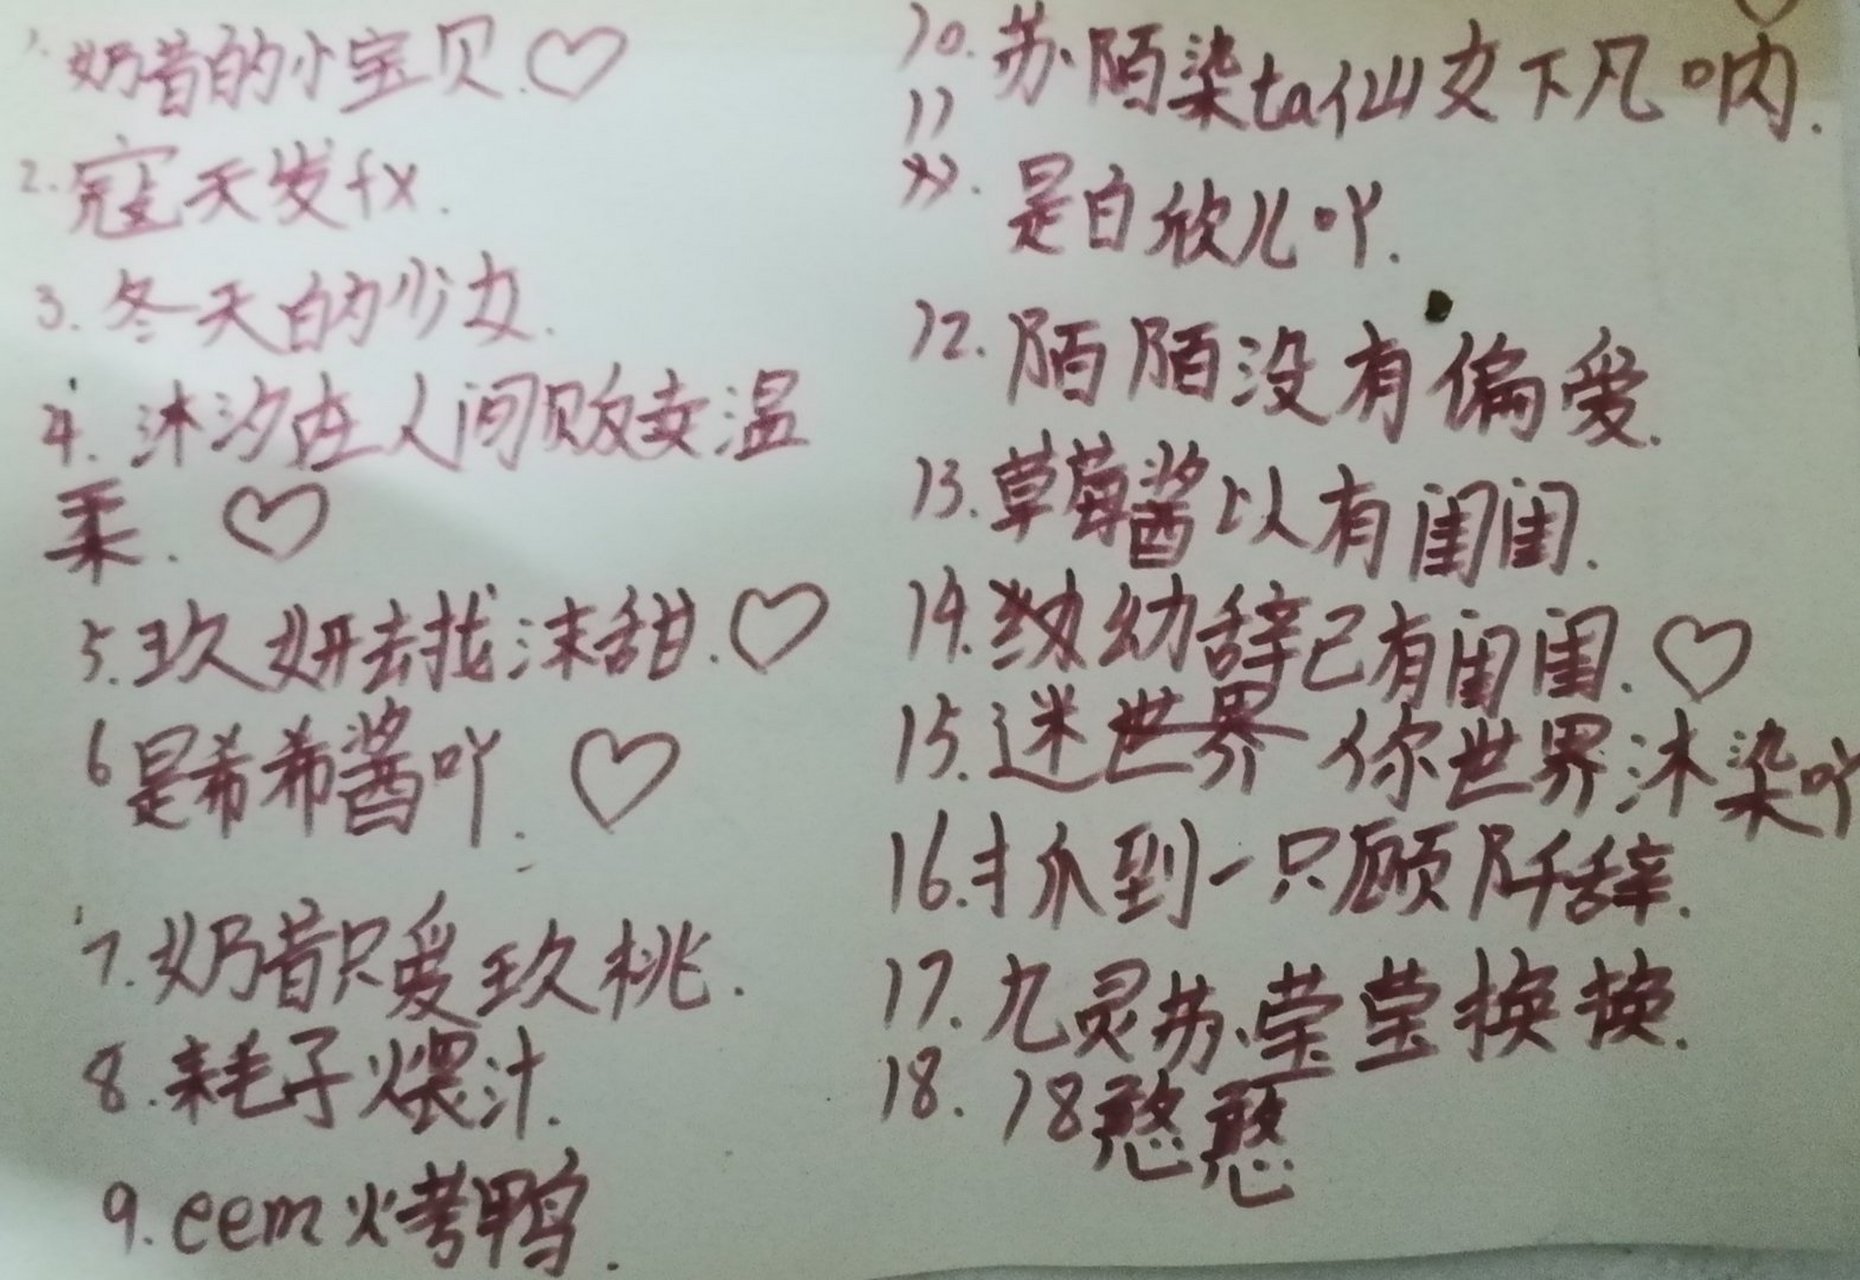 1. 奶昔的小宝贝.♡
2. 寇天发fx.
3. 冬天的少女.
4. 沐汐在人间贩卖温
柔. ♡
5. 玖妍去找沫甜.♡
6 是希希酱吖. ♡
7. 奶昔只爱玖桃.
8. 耗子煨汁.
9. eem烤鸭.
10. 苏陌染ta仙女下凡呐.
11
是白欣儿吖.
12. 陌陌没有偏爱.
13. 草莓酱以有闺闺.
14. 幼辞已有闺闺.♡
15. 迷世界 你世界沐染吖
16. 抓到一只顾阡辞.
17. 九灵苏莹莹换换.
18. 18憨憨